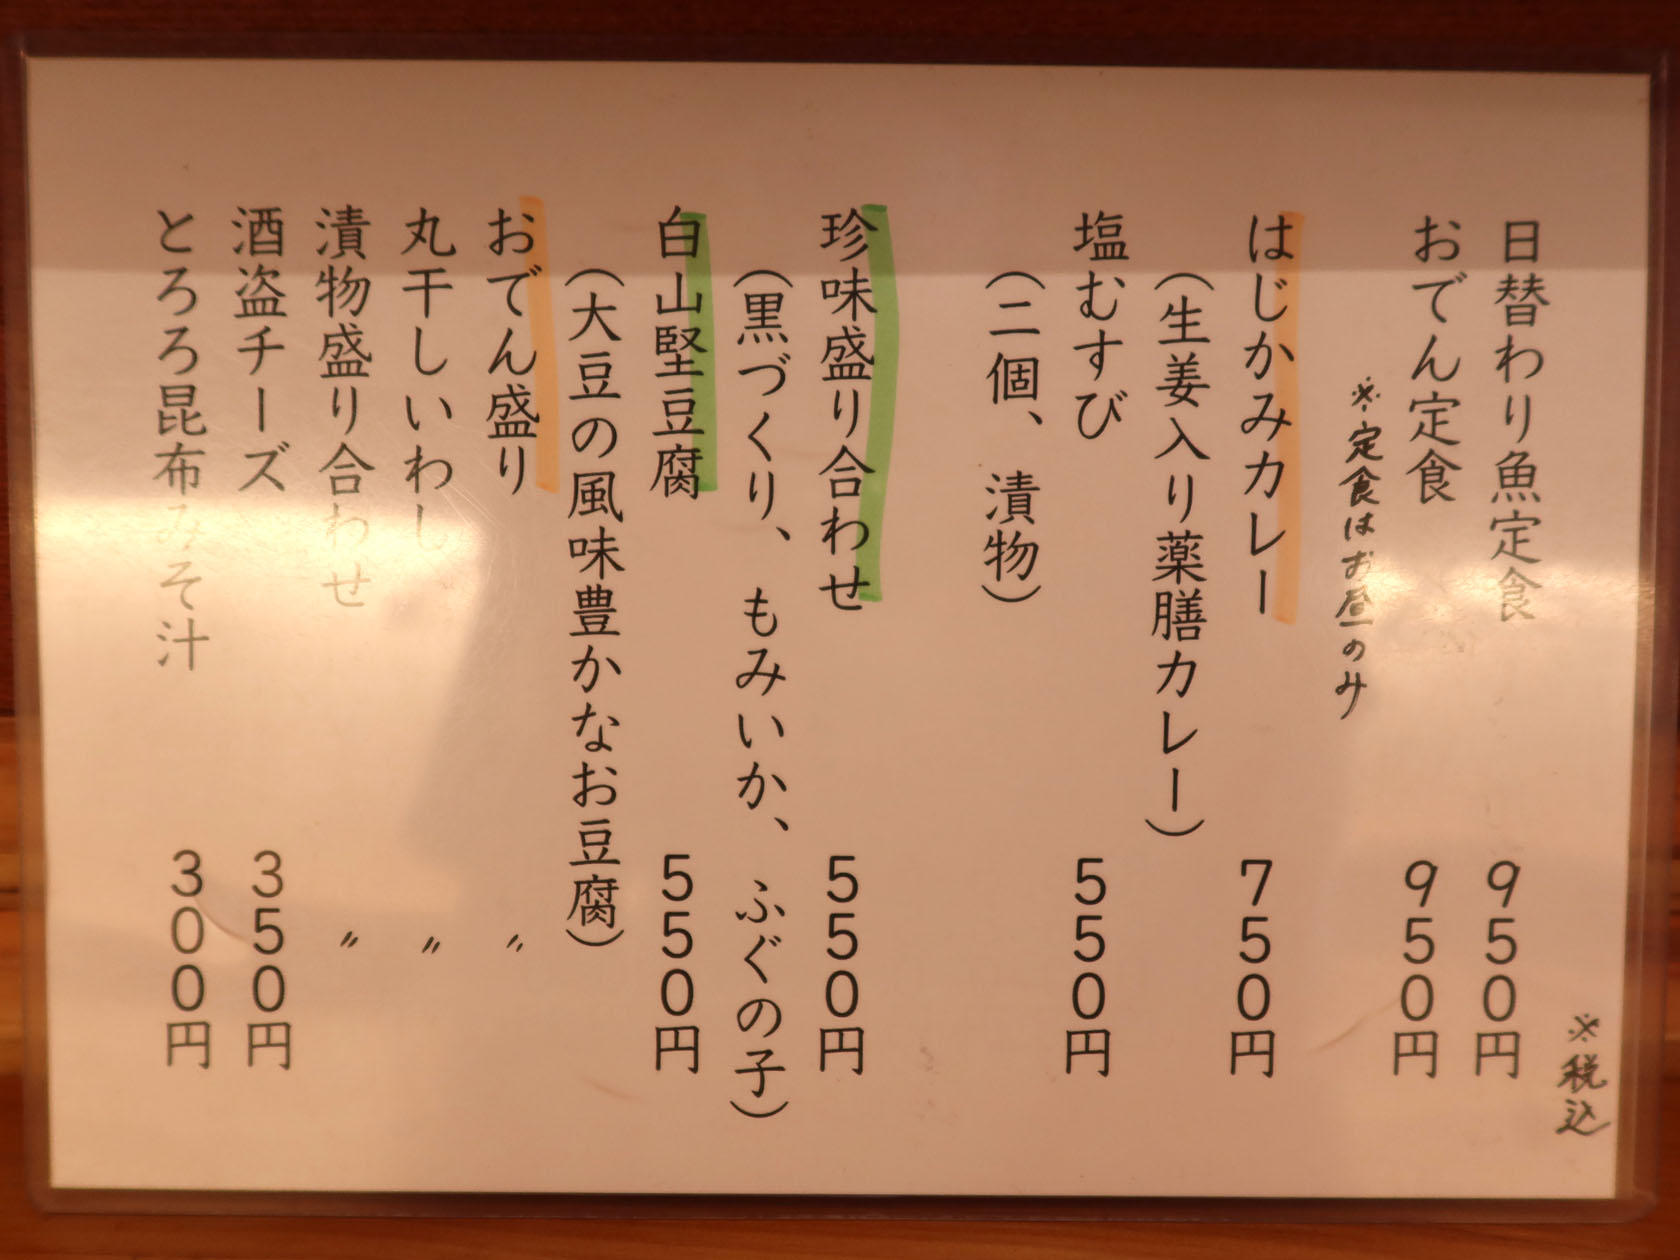 ※税込
日替わり魚定食 950円
おでん定食 950円
※定食はお昼のみ
はじかみカレー 750円
(生姜入り薬膳カレー)
塩むすび 550円
(二個、漬物)
珍味盛り合わせ 550円
(黒づくり、もみいか、ふぐの子)
白山堅豆腐 550円
(大豆の風味豊かなお豆腐)
おでん盛り 〃
丸干しいわし 〃
漬物盛り合わせ 〃
酒盗チーズ 350円
とろろ昆布みそ汁 300円